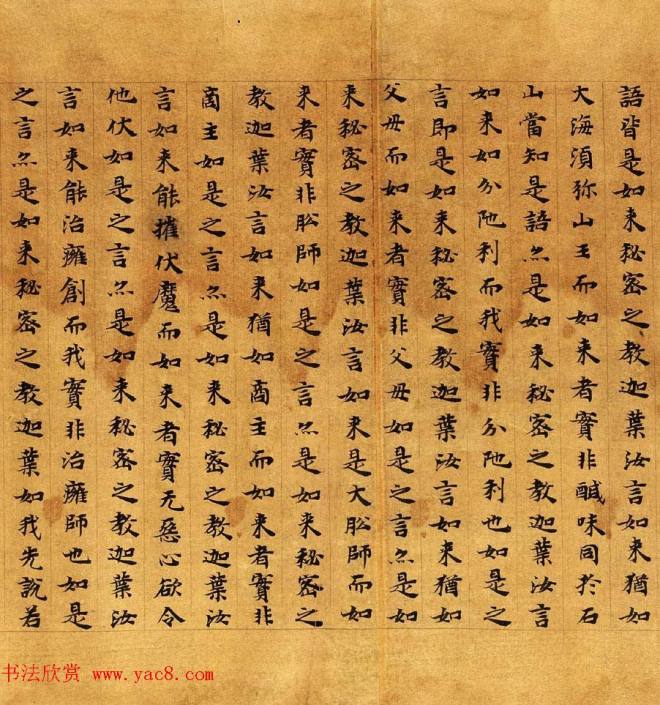 語皆是如来秘密之教迦葉汝言如来猶如
大海湏弥山王而如来者實非醎味同於石
山當知是語亦是如来秘密之教迦葉汝言
如来如分陁利而我實非分陁利也如是之
言即是如来秘密之教迦葉汝言如来猶如
父母而如来者實非父母如是之言亦是如
来秘密之教迦葉汝言如来是大舩師而如
来者實非舩師如是之言亦是如来秘密之
教迦葉汝言如来猶如商主而如来者實非
商主如是之言亦是如来秘密之教迦葉汝
言如来能摧伏魔而如来者實无惡心欲令
他伏如是之言亦是如来秘密之教迦葉汝
言如来能治癕創而我實非治癕師也如是
之言亦是如来秘密之教迦葉如我先說若
书法欣赏 www.yac8.com